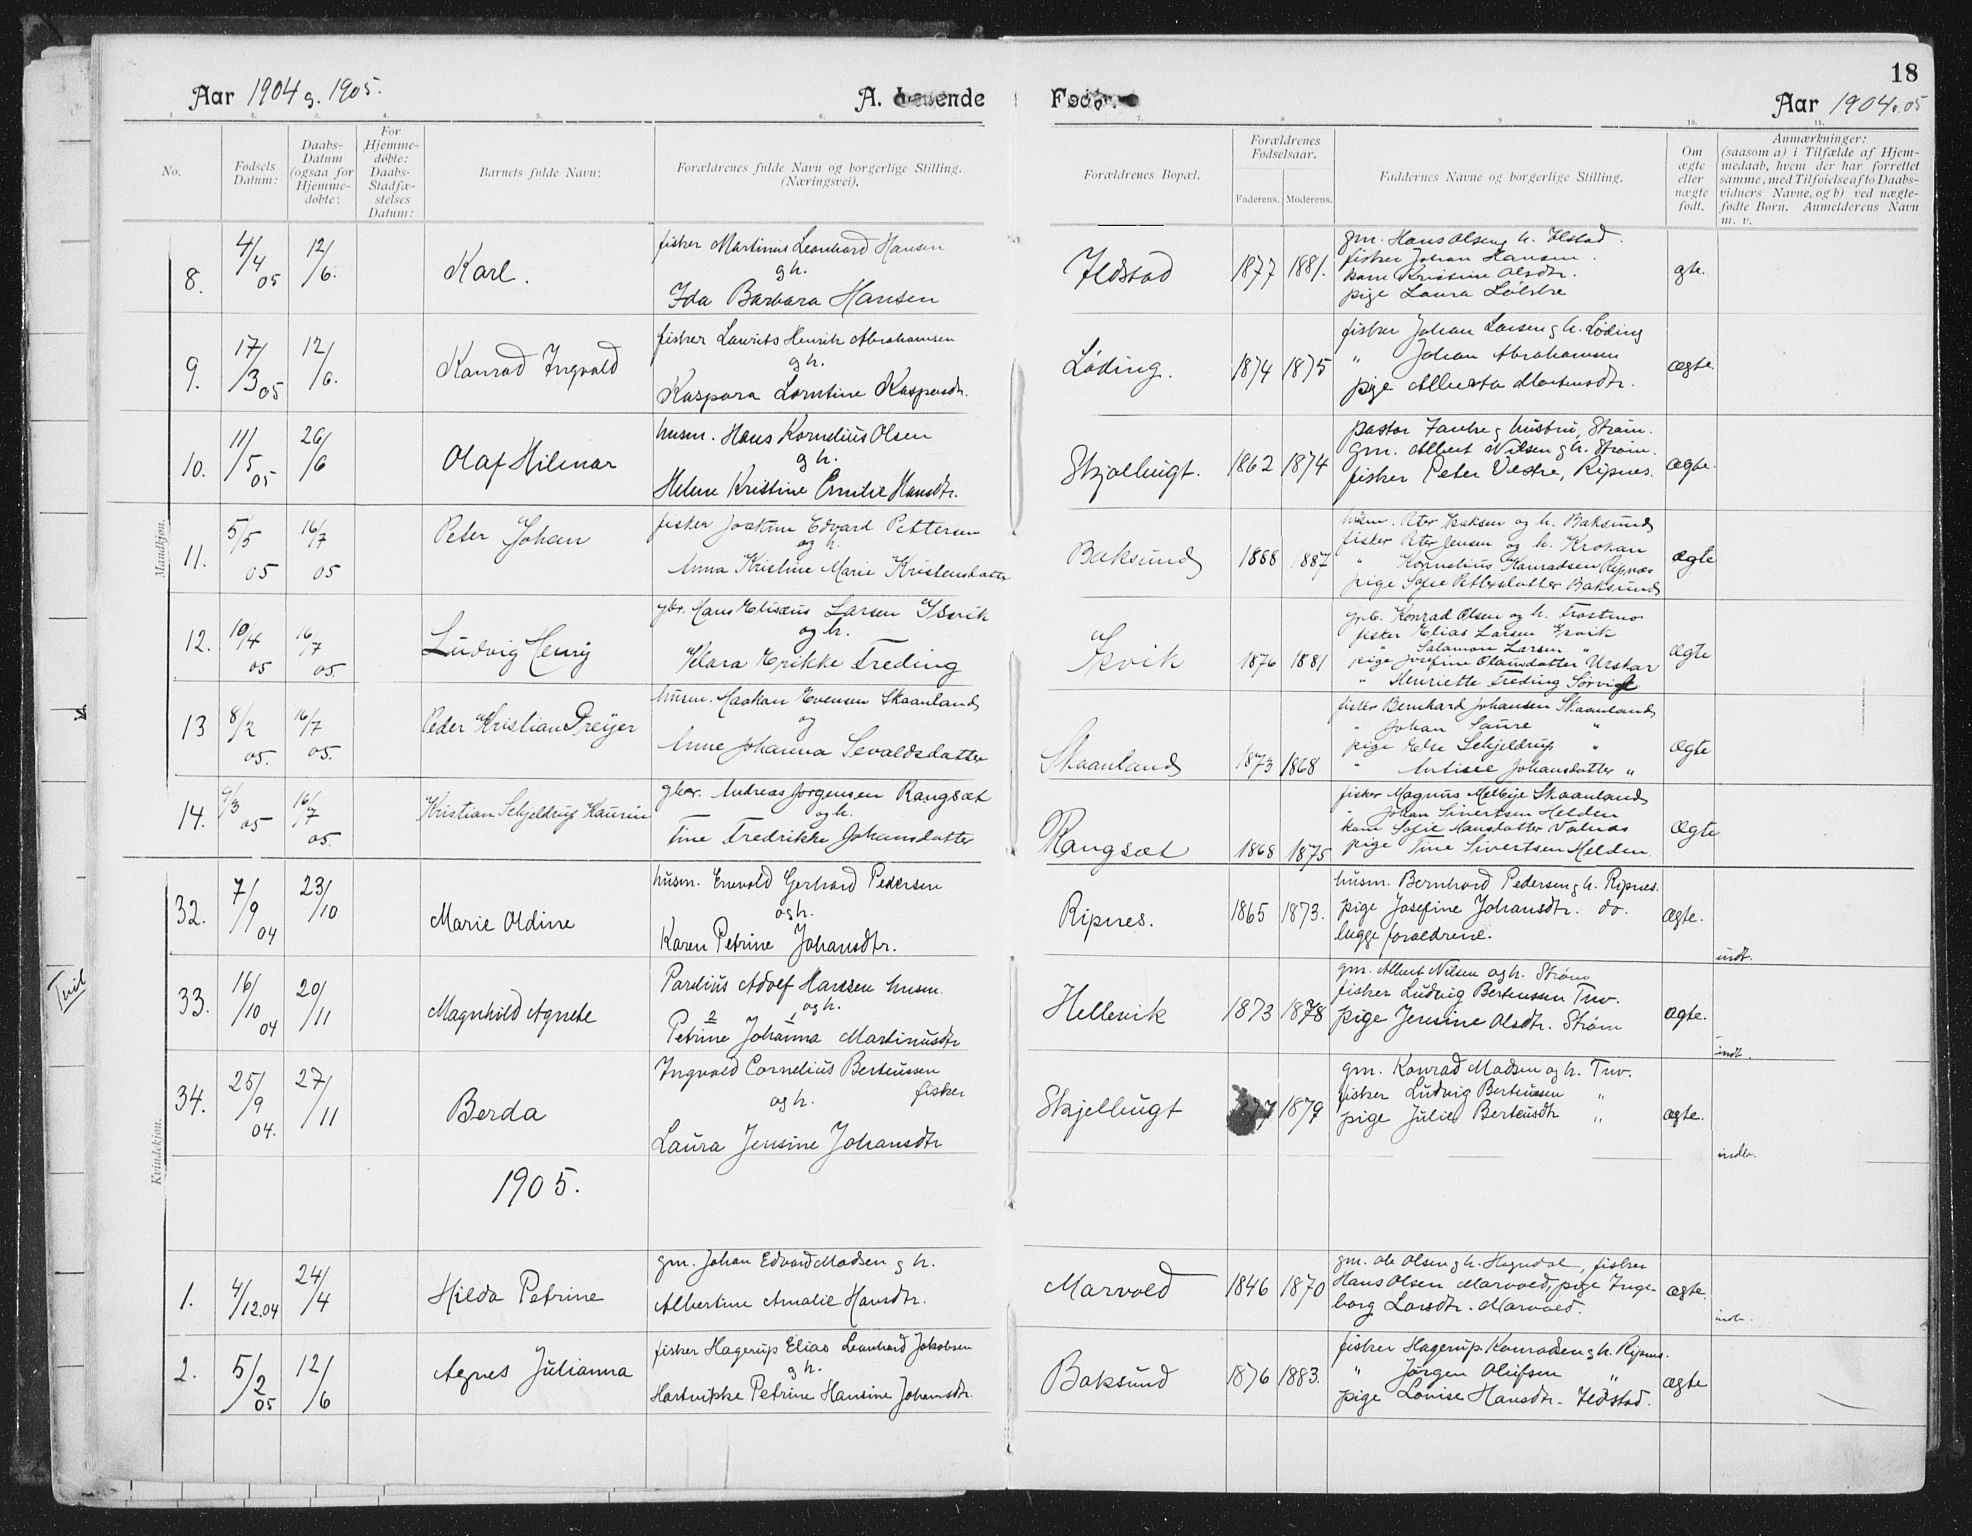 18
Aar 1904 g. 1905.
A. Levende
Fødte.
Aar 1904 o. 05
No.
Fødsels Datum:
Daabs-Datum (ogsaa for Hjemmedøbte:
For Hjemmedøbte: Daabs-Stadfæstelses Datum:
Barnets fulde Navn:
Forældrenes fulde Navn og borgerlige Stilling. (Næringsvei).
Forældrenes Bopæl.
Forældrenes Fødselsaar.
Faderens. Moderens.
Faddernes Navne og borgerlige Stilling.
Om ægte eller uægte født.
Anmærkninger:
(saasom a) i Tilfælde af Hjemmedaab, hvem der har forrettet samme, med Tilføielse af to Daabsvidners Navne, og b) ved uægtefødte Børn. Anmelderens Navn m. v.
Mandkjøn.
8. 4/4 05 12/6. Karl.
fisker Martinus Leonhard Hansen
g h.
Ida Barbara Hansen
Ildstad 1877 1881.
gm. Hans Olsen g h. Ilstad.
fisker Johan Hansen.
kone Kristine Olsdtr.
pige Laura
gte.
9. 17/3 05 12/6. Konrad Ingvald
fisker Laurits Henrik Abrahamsen
g h.
Kaspara Lorntine Kaspersdtr.
Løding. 1874 1875
fisker Johan Larsen g h. Løding
" Johan Abrahamsen
pige Alberta Mortensdtr.
ægte.
10. 11/5 05 26/6 Olaf Hilmar
husm. Hans Kornelius Olsen
g h.
Helene Kristine Emilie Hansdtr.
Skjelbugt. 1862 1874
pastor g hustru, Strøm.
gm. Albert Nilsen g h. Strøm.
fisker Peter Vestre, Ripnes.
ægte.
11. 5/5 05 16/7 05 Peter Johan
fisker Joakim Edvard Pettersen
og h.
Anna Kristine Marie Kristensdatter
Baksund 1888 1887
husm. Peter Isaksen og h. Baksund
fisker Peter Jensen og h. Krokan
" Kornelius Konradsen Ripnæs
pige Sofie Pettersdatter Baksund
ægte
12. 10/4 05 16/7 05. Ludvig Henry
gbr. Hans Elisæus Larsen
og h.
Klara Erikke Freding
1876 1881
gbr. Konrad Olsen og h. Frostmo
fisker Elias Larsen
" Salamon Larsen "
pige Josefine Olausdatter
" Henriette Freding
ægte
13 8/2 05. 16/7 05. Peder Kristian Dreyer
husm. Haakon Evensen Skaanland
og
Anne Johanna Sevaldsdatter
Skaanland 1873 1868
fisker Bernhard Johansen Skaanland
" Johan Saure "
pige Else Schjeldrup "
" Johansdatter "
ægte
14. 9/3 05 16/7 05. Kristian Schjeldrup Kaurin
gbr. Andreas Jørgensen Rangsæt
og h.
Tine Fredrikke Johansdatter
Rangsæt 1868 1875
fisker Magnus Melbye Skaanland
" Johan Sivertsen Helden
kone Sofie Hansdatter Valnæs
pige Tine Sivertsen Helden.
ægte
Kvindekjøn.
32. 7/9 04 23/10 Marie Oldine
husm. Enevold Gerhard Pedersen
og h.
Karen Petrine Johansdtr.
Ripnes. 1865 1873.
husm. Bernhard Pedersen g h. Ripnes.
pige Josefine Johansdtr. do.
begge forældrene.
ægte.
indt.
33. 16/10 04 20/11 Magnhild Agnete
Parelius Adolf Hansen husm.
og h.
2 1
Petrine Johanna Martinusdtr
Hellevik 1873 1878
gm. Albert Nilsen og h. Strøm
fisker Ludvig Berteussen Tuv.
pige Jensine Olsdtr. Strøm
ægte.
indt.
34. 25/9 04. 27/11 Berda
Ingvald Cornelius Berteussen
og h. fisker
Laura Jensine Johansdtr
Skjelbugt 77 1879
gm. Konrad Madsen og h. Tuv.
fisker Ludvig Berteussen "
pige Julie Berteusdtr "
ægte.
indt.
1905.
1. 4/12.04 24/4 Hilda Petrine
gm. Johan Edvard Madsen g h.
Albertine Amalie Hansdtr.
Marvold 1846 1870
gm. Ole Olsen g h. Hegndal, fisker
Hans Olsen Marvold, pige Inge-
borg Larsdtr. Marvold.
ægte.
indt.
2. 5/2 05 12/6 Agnes Julianna
fisker Hagerup Elias Leonhard Jakobsen
g h.
Hartvikke Petrine Hansine Johansdtr.
Baksund 1876 1883.
fisker Hagerup Konradsen g h. Ripnes.
" Jørgen Olufsen "
pige Lovise Hansdtr. Ildstad.
ægte
Tvil